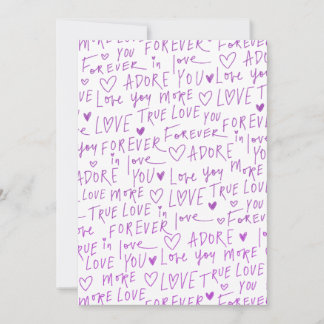 MORE LOVE YOU FOREVER
FOREVER in love
ADORE YOU
Love you MORE LOVE
TRUE LOVE YOU
you FOREVER FOREVER
in love ADORE
YOU Love you MORE
LOVE MORE LOVE
TRUE LOVE in love
FOREVER FOREVER
TRUE in love ADORE
LOVE YOU Love you
MORE LOVE TRUE
LOVE YOU FOREVER
FOREVER in